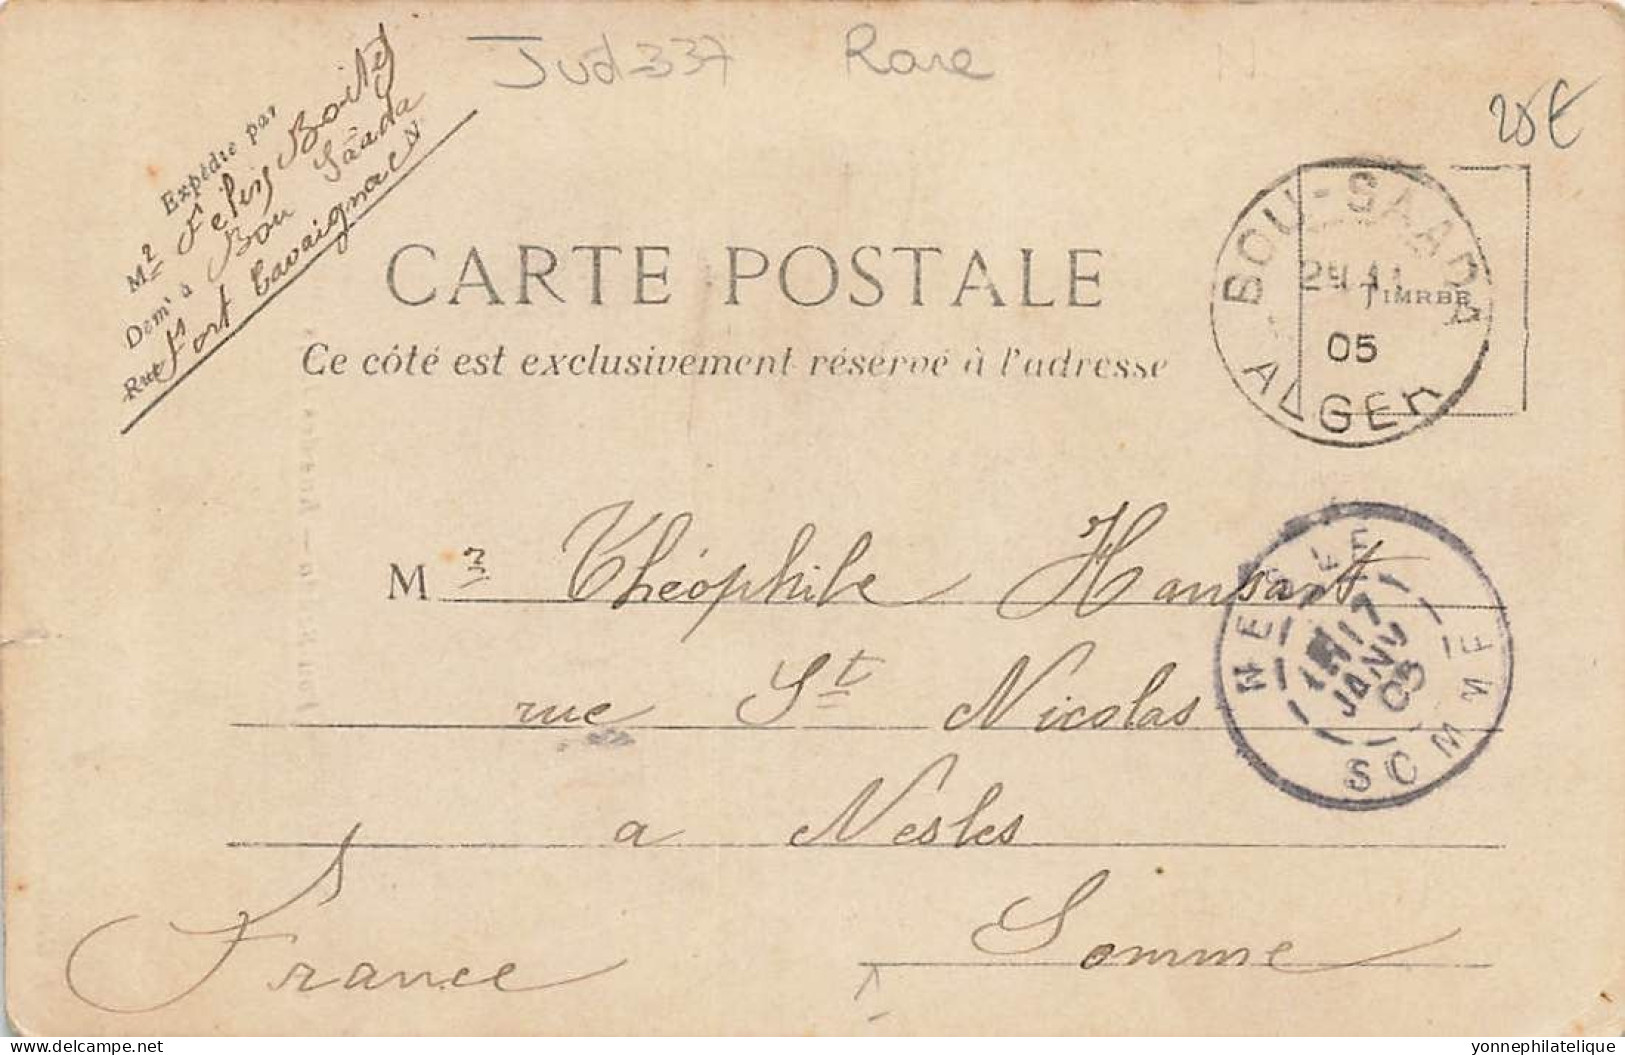 Jud-337 Rare
25€
Expédié par
Mr Félix Boitel
Demt à Bou Sâada
Rue Fort Cavaignac N°
CARTE POSTALE
Ce côté est exclusivement réservé à l'adresse
TIMRBE
BOU-SAADA
05
ALGER
Mr Théophile Hansart
rue St Nicolas
a Nesles
Somme
France
NESLE
17
JANV
05
SOMME
yonnephilatelie@delcampe.net